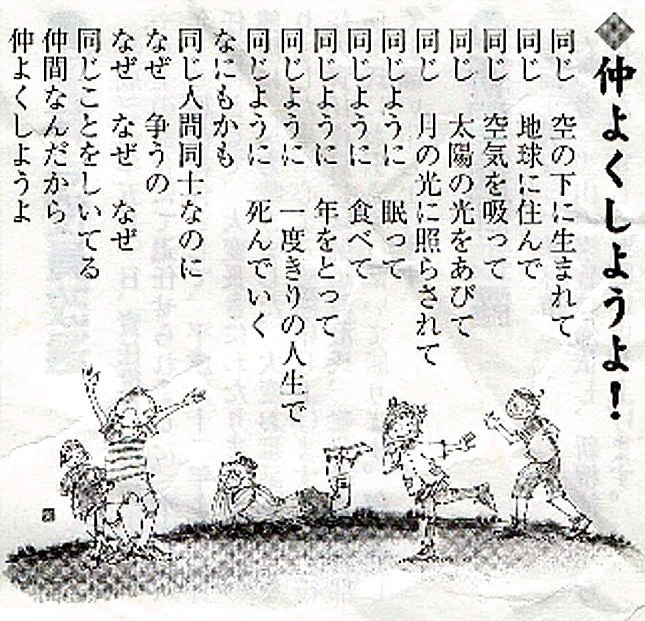 仲よくしようよ！
同じ　空の下に生まれて
同じ　地球に住んで
同じ　空気を吸って
同じ　太陽の光をあびて
同じ　月の光に照らされて
同じように　眠って
同じように　食べて
同じように　年をとって
同じように　一度きりの人生で
同じように　死んでいく
なにもかも
同じ人間同士なのに
なぜ　争うの
なぜ　なぜ　なぜ
同じことをしいてる
仲間なんだから
仲よくしようよ